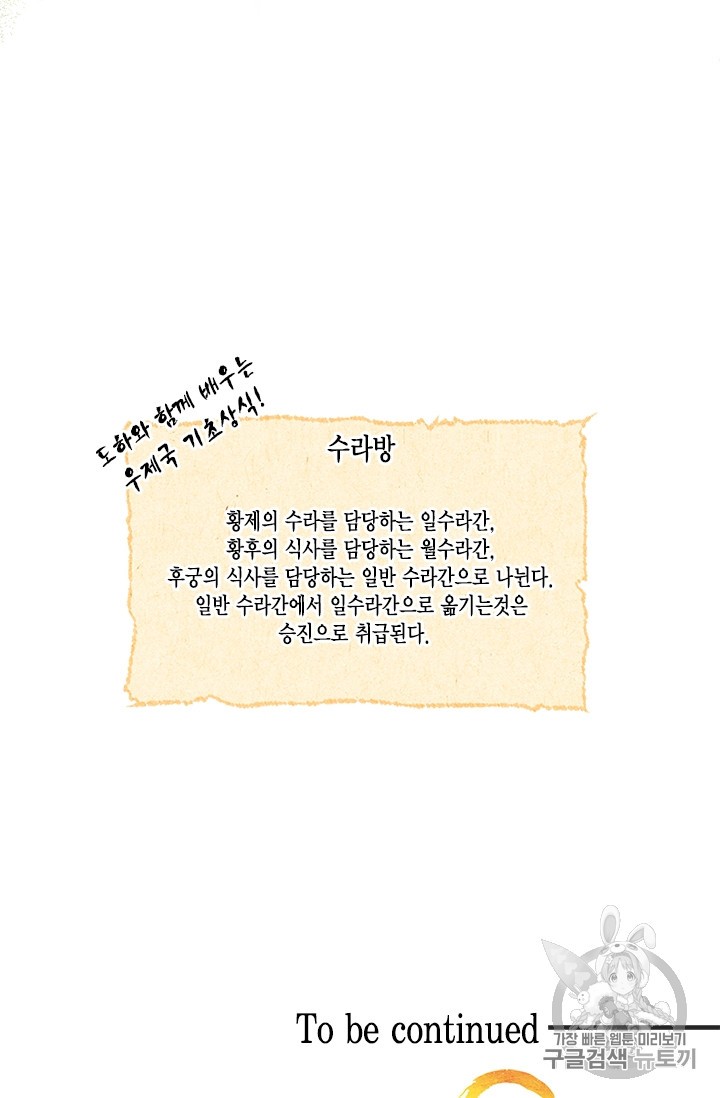 도하와 함께 배우는
우제국 기초상식!
수라방
황제의 수라를 담당하는 일수라간,
황후의 식사를 담당하는 월수라간,
후궁의 식사를 담당하는 일반 수라간으로 나뉜다.
일반 수라간에서 일수라간으로 옮기는것은
승진으로 취급된다.
To be continued
가장 빠른 웹툰 미리보기
구글검색 뉴토끼